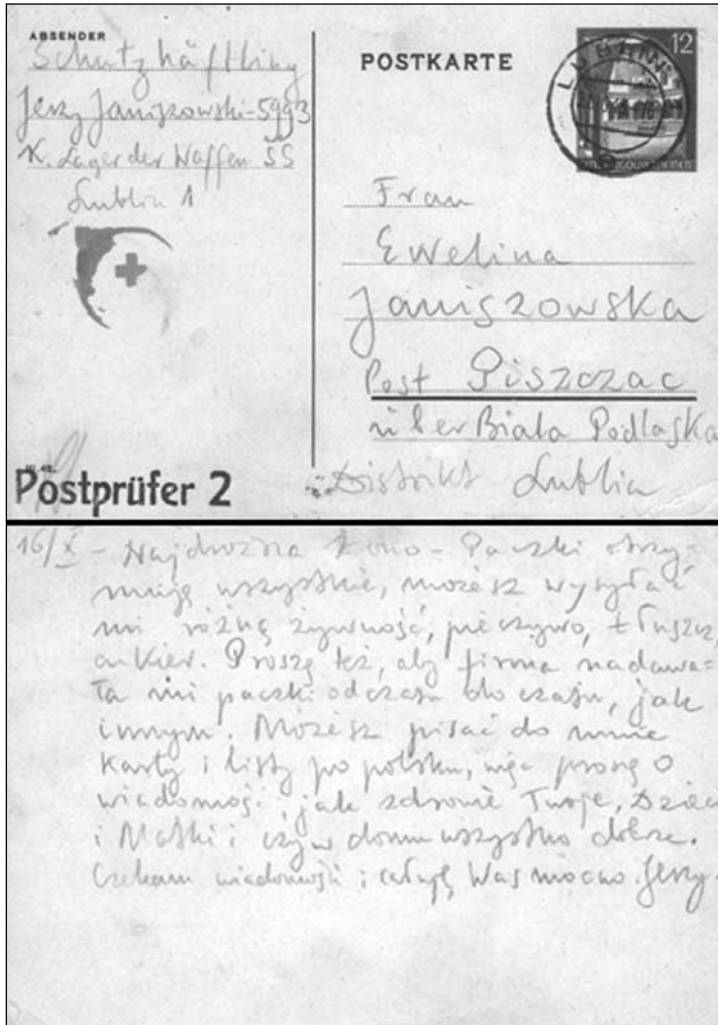 ABSENDER
Schutzhäftling
Jerzy Janiszowski-5993
K. Lager der Waffen SS
Lublin 1
POSTKARTE
12
LUBLIN
Frau
Ewelina
Janiszowska
Post Piszczac
über Biała Podlaska
Distrikt Lublin
Postprüfer 2
16/X - Najdroższa Żono - Paczki otrzy-
muję wszystkie, możesz wysyłać
mi różną żywność, pieczywo, tłuszcz,
cukier. Proszę też, aby firma nadawa=
ła mi paczki od czasu do czasu, jak
innym. Możesz pisać do mnie
karty i listy po polsku, więc proszę o
wiadomość, jak zdrowie Twoje, Dzieci
i Matki i czy w domu wszystko dobrze.
Czekam wiadomości i całuję Was mocno. Jerzy.